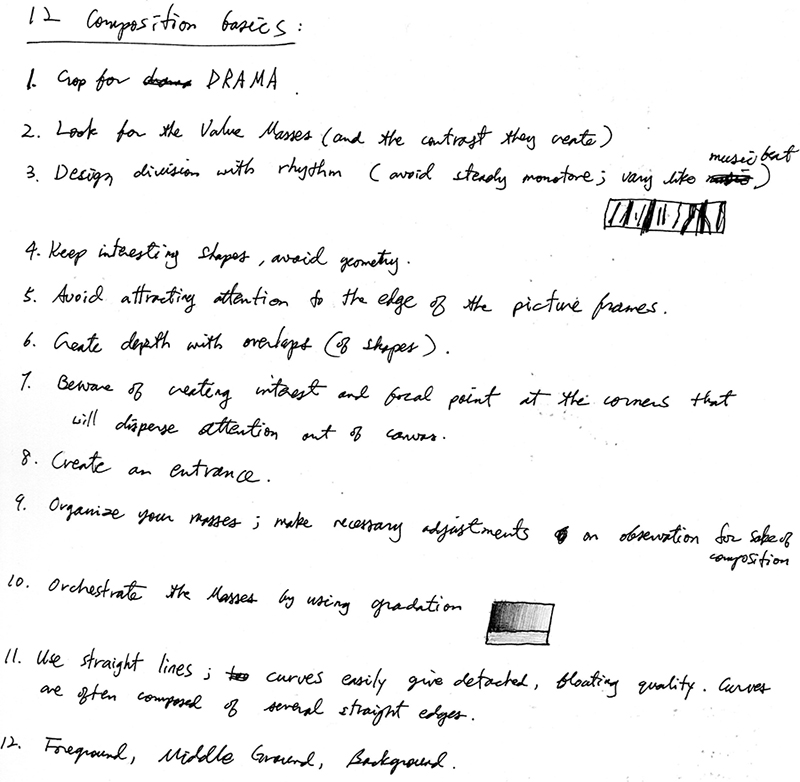 12 Composition basics:
1. Crop for DRAMA.
2. Look for the Value Masses (and the contrast they create)
3. Design division with rhythm (avoid steady monotone; vary like music beat)
4. Keep interesting shapes, avoid geometry.
5. Avoid attracting attention to the edge of the picture frames.
6. Create depth with overlaps (of shapes).
7. Beware of creating interest and focal point at the corners that
will disperse attention out of canvas.
8. Create an entrance.
9. Organize your masses; make necessary adjustments on observation for sake of
composition
10. Orchestrate the Masses by using gradation
11. Use straight lines; curves easily give detached, floating quality. Curves
are often composed of several straight edges.
12. Foreground, Middle Ground, Background.